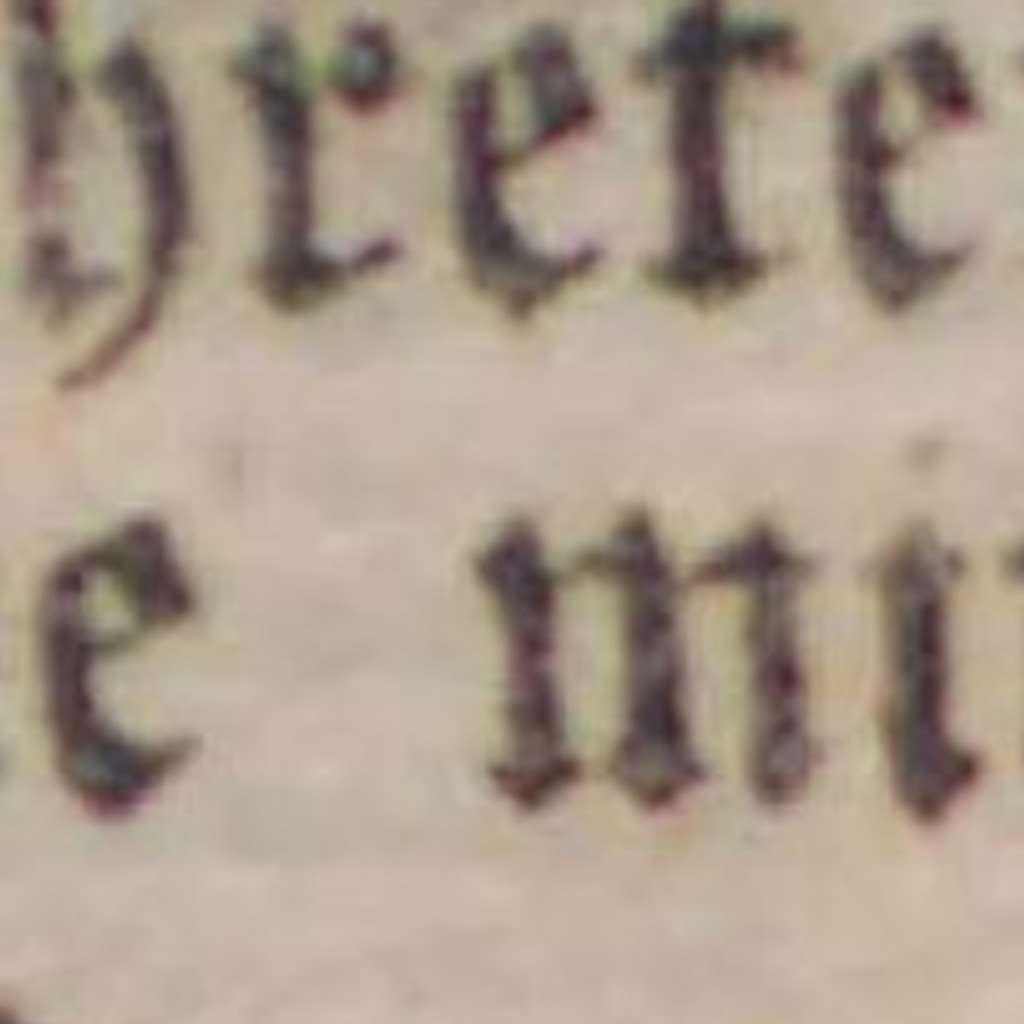 hrete
e mi